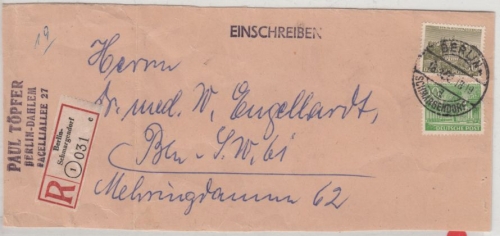 EINSCHREIBEN
PAUL TÖPFER
BERLIN-DAHLEM
PACELLIALLEE 27
R
Berlin-
Schmargendorf
1
031
c
BERLIN
SCHMARGENDORF
DEUTSCHE POST
Herrn
Dr. med. W. Engelhardt,
Bln - S.W. 61
Mehringdamm 62